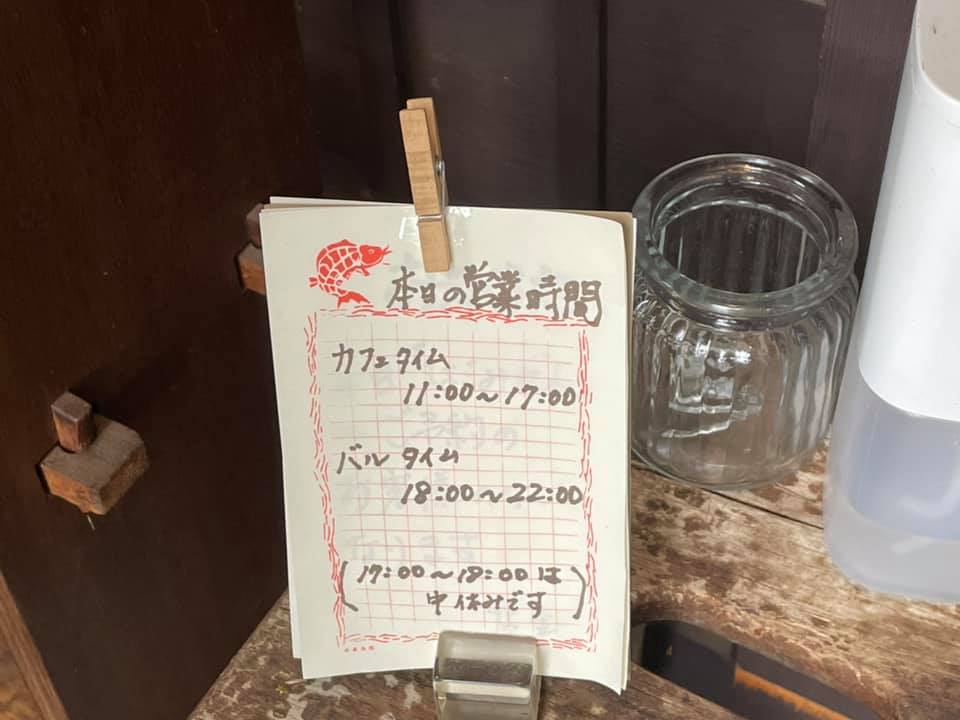 本日の営業時間
カフェタイム
11:00～17:00
バル タイム
18:00～22:00
(17:00～18:00は
中休みです)